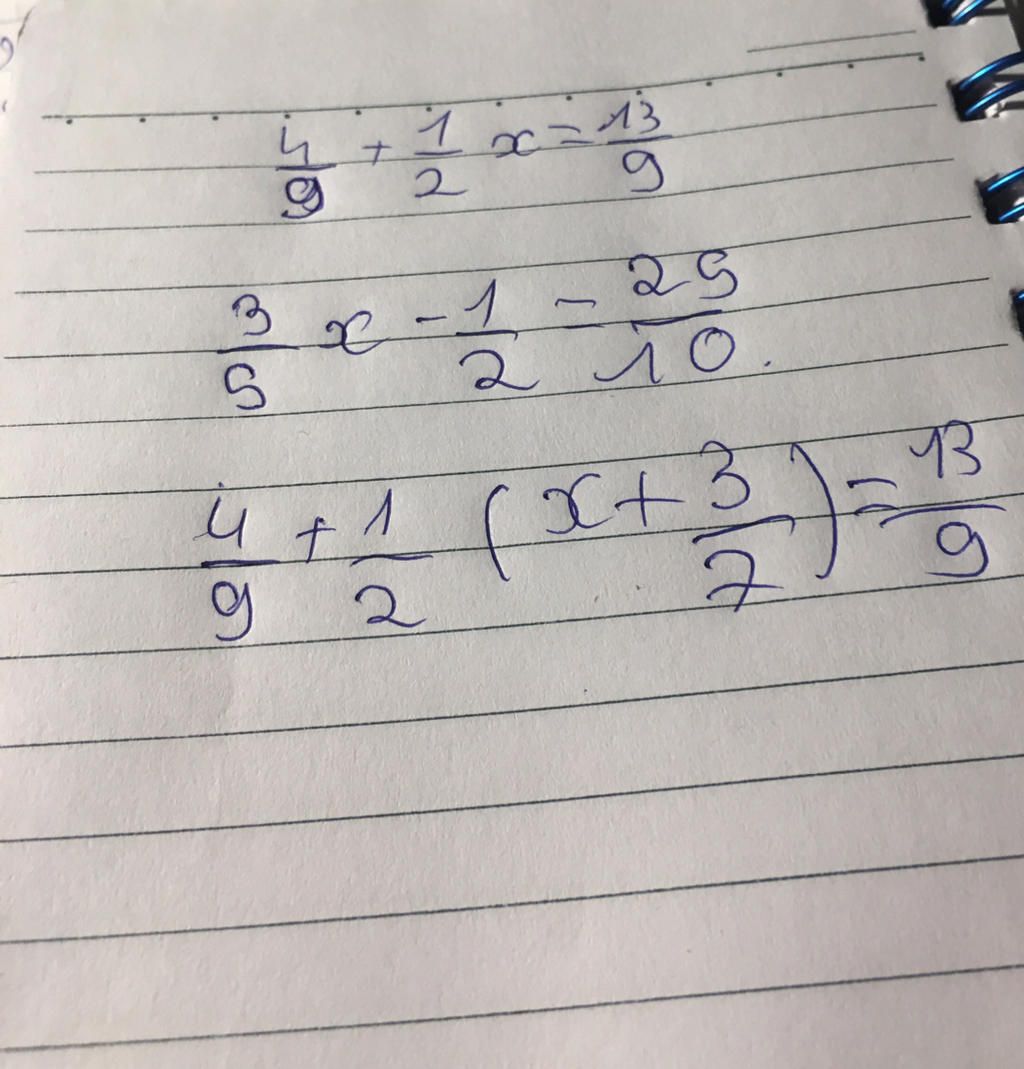 4/9 + 1/2 x = 13/9
3/5 x - 1/2 - 25/10.
4/9 + 1/2 (x + 3/7) = 13/9